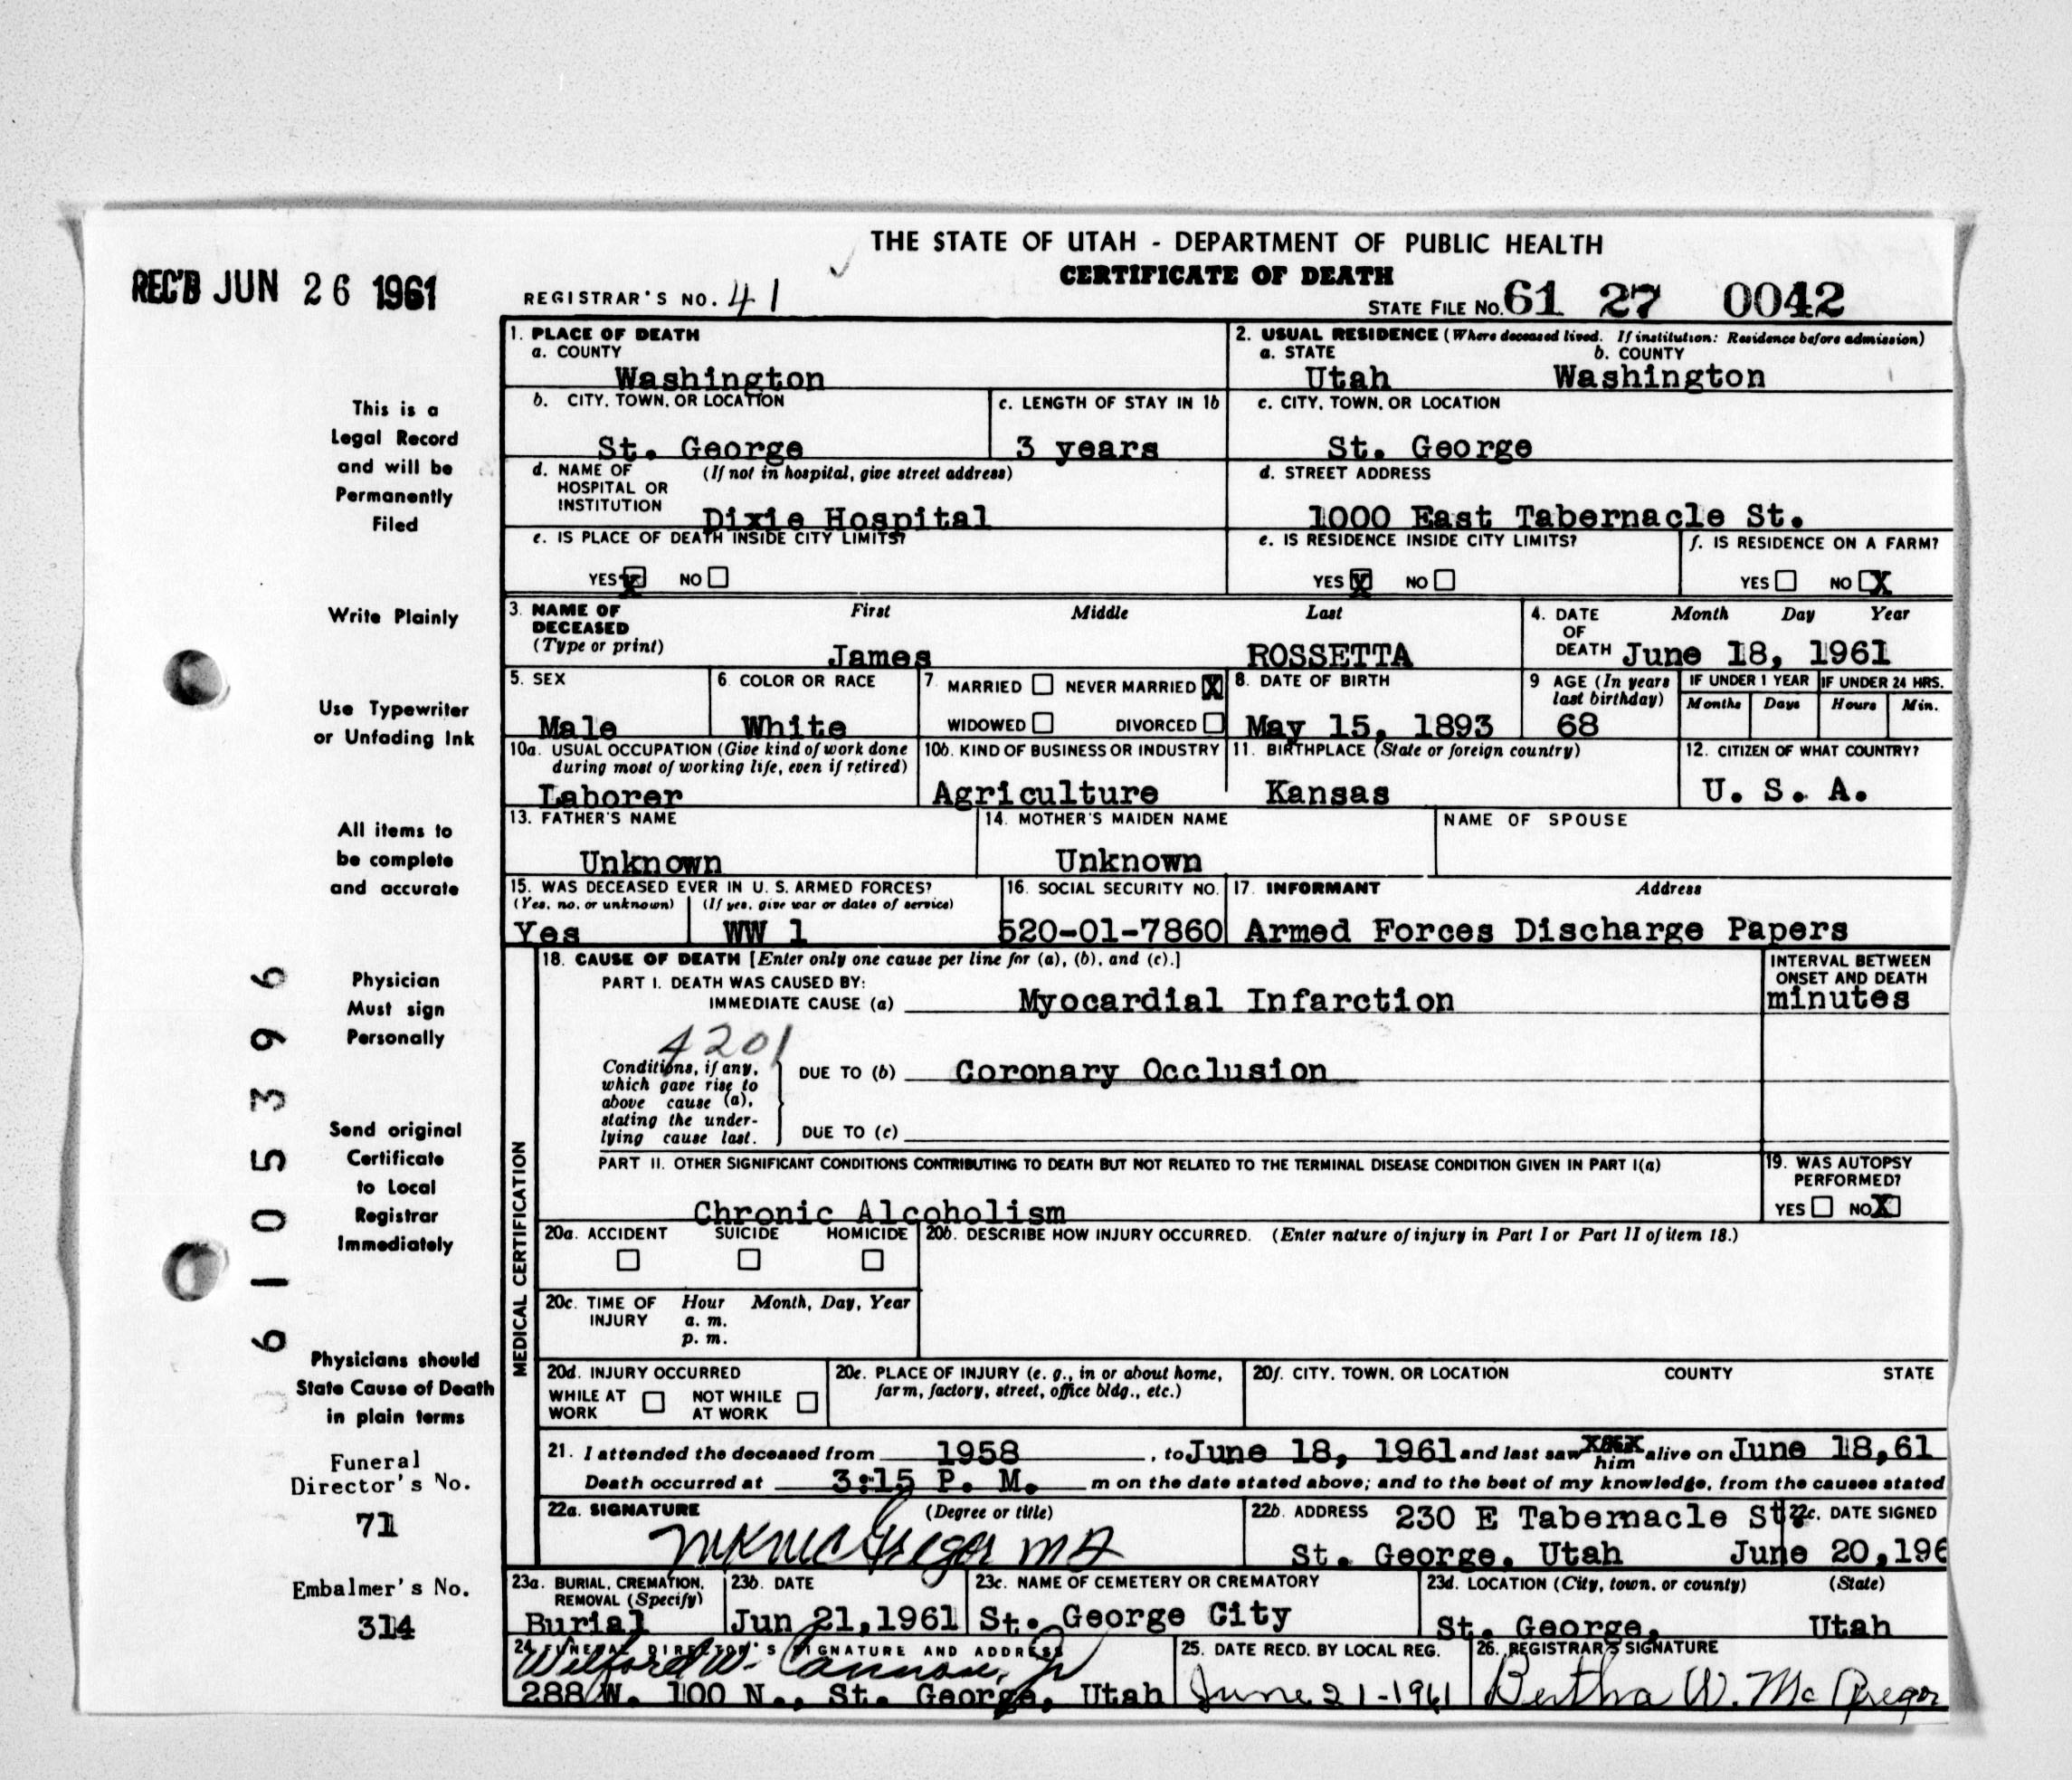 THE STATE OF UTAH - DEPARTMENT OF PUBLIC HEALTH
CERTIFICATE OF DEATH
REC'D JUN 26 1961
REGISTRAR'S NO. 41
STATE FILE NO. 61 27 0042
This is a
Legal Record
and will be
Permanently
Filed
Write Plainly
Use Typewriter
or Unfading Ink
All items to
be complete
and accurate
Physician
Must sign
Personally
Send original
Certificate
to Local
Registrar
Immediately
Physicians should
State Cause of Death
in plain terms
Funeral
Director's No.
71
Embalmer's No.
314
6105396
1. PLACE OF DEATH
a. COUNTY
Washington
2. USUAL RESIDENCE (Where deceased lived. If institution: Residence before admission)
a. STATE b. COUNTY
Utah Washington
b. CITY, TOWN, OR LOCATION
St. George
c. LENGTH OF STAY IN 1b
3 years
c. CITY, TOWN, OR LOCATION
St. George
d. NAME OF (If not in hospital, give street address)
HOSPITAL OR
INSTITUTION
Dixie Hospital
d. STREET ADDRESS
1000 East Tabernacle St.
e. IS PLACE OF DEATH INSIDE CITY LIMITS?
YES X NO
e. IS RESIDENCE INSIDE CITY LIMITS?
YES X NO
f. IS RESIDENCE ON A FARM?
YES NO X
3. NAME OF First Middle Last
DECEASED
(Type or print)
James ROSSETTA
4. DATE Month Day Year
OF
DEATH June 18, 1961
5. SEX
Male
6. COLOR OR RACE
White
7. MARRIED NEVER MARRIED X
WIDOWED DIVORCED
8. DATE OF BIRTH
May 15, 1893
9 AGE (In years
last birthday)
68
IF UNDER 1 YEAR IF UNDER 24 HRS.
Months Days Hours Min.
10a. USUAL OCCUPATION (Give kind of work done
during most of working life, even if retired)
Laborer
10b. KIND OF BUSINESS OR INDUSTRY
Agriculture
11. BIRTHPLACE (State or foreign country)
Kansas
12. CITIZEN OF WHAT COUNTRY?
U. S. A.
13. FATHER'S NAME
Unknown
14. MOTHER'S MAIDEN NAME
Unknown
NAME OF SPOUSE
15. WAS DECEASED EVER IN U. S. ARMED FORCES?
(Yes, no, or unknown) (If yes, give war or dates of service)
Yes WW 1
16. SOCIAL SECURITY NO.
520-01-7860
17. INFORMANT Address
Armed Forces Discharge Papers
MEDICAL CERTIFICATION
18. CAUSE OF DEATH [Enter only one cause per line for (a), (b), and (c).]
PART I. DEATH WAS CAUSED BY:
IMMEDIATE CAUSE (a) Myocardial Infarction
INTERVAL BETWEEN
ONSET AND DEATH
minutes
4201
Conditions, if any,
which gave rise to
above cause (a),
stating the under-
lying cause last.
DUE TO (b) Coronary Occlusion
DUE TO (c)
PART II. OTHER SIGNIFICANT CONDITIONS CONTRIBUTING TO DEATH BUT NOT RELATED TO THE TERMINAL DISEASE CONDITION GIVEN IN PART I(a)
Chronic Alcoholism
19. WAS AUTOPSY
PERFORMED?
YES NO X
20a. ACCIDENT SUICIDE HOMICIDE
20b. DESCRIBE HOW INJURY OCCURRED. (Enter nature of injury in Part I or Part II of item 18.)
20c. TIME OF Hour Month, Day, Year
INJURY a. m.
p. m.
20d. INJURY OCCURRED
WHILE AT NOT WHILE
WORK AT WORK
20e. PLACE OF INJURY (e. g., in or about home,
farm, factory, street, office bldg., etc.)
20f. CITY, TOWN, OR LOCATION COUNTY STATE
21. I attended the deceased from 1958, to June 18, 1961 and last saw him alive on June 18,61
Death occurred at 3:15 P. M. m on the date stated above; and to the best of my knowledge, from the causes stated
22a. SIGNATURE (Degree or title)
McGregor MD
22b. ADDRESS 230 E Tabernacle St.
St. George, Utah
22c. DATE SIGNED
June 20,196
23a. BURIAL, CREMATION,
REMOVAL (Specify)
Burial
23b. DATE
Jun 21,1961
23c. NAME OF CEMETERY OR CREMATORY
St. George City
23d. LOCATION (City, town, or county) (State)
St. George, Utah
24 FUNERAL DIRECTOR'S SIGNATURE AND ADDRESS
Wilford W. Cannon, Jr
288 W. 100 N., St. George, Utah
25. DATE RECD. BY LOCAL REG.
June 21-1961
26. REGISTRAR'S SIGNATURE
Bertha W. McGregor